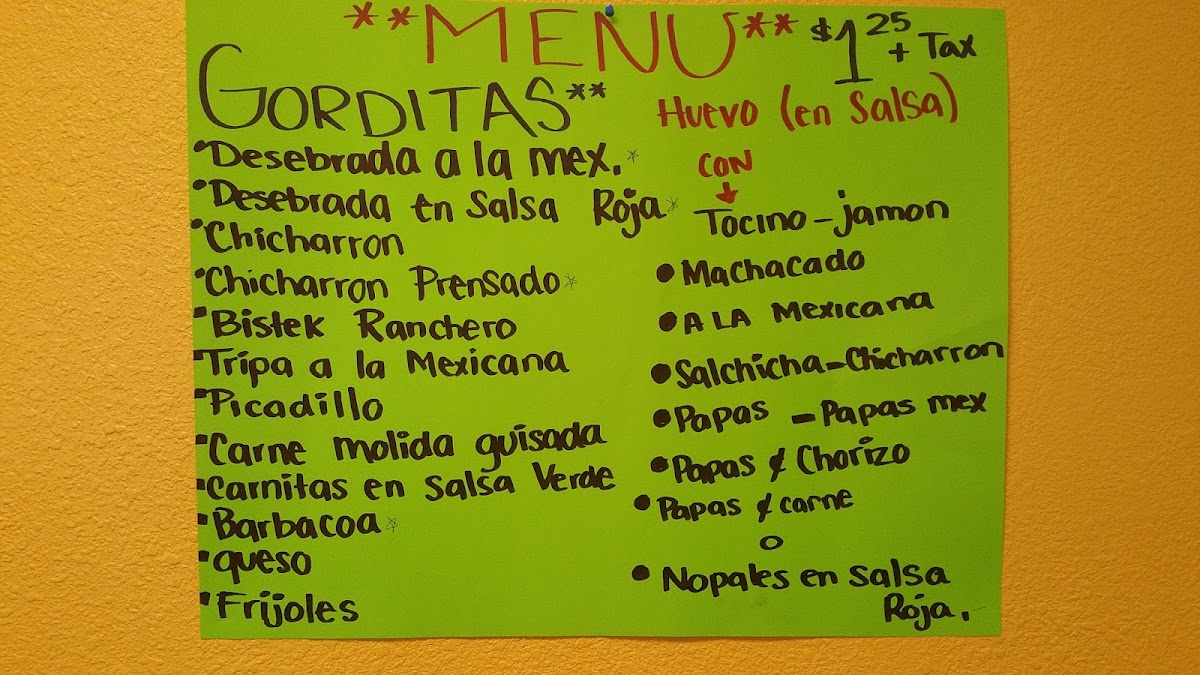 **MENU** $1.25 + Tax
GORDITAS**
•Desebrada a la mex.*
•Desebrada en Salsa Roja*
•Chicharron
•Chicharron Prensado*
•Bistek Ranchero
•Tripa a la Mexicana
•Picadillo
•Carne molida guisada
•Carnitas en Salsa Verde
•Barbacoa*
•queso
•Frijoles
Huevo (en Salsa)
CON
↓
Tocino - jamon
•Machacado
•A LA Mexicana
•Salchicha - Chicharron
•Papas - Papas mex
•Papas & Chorizo
•Papas & carne
o
•Nopales en salsa
Roja.